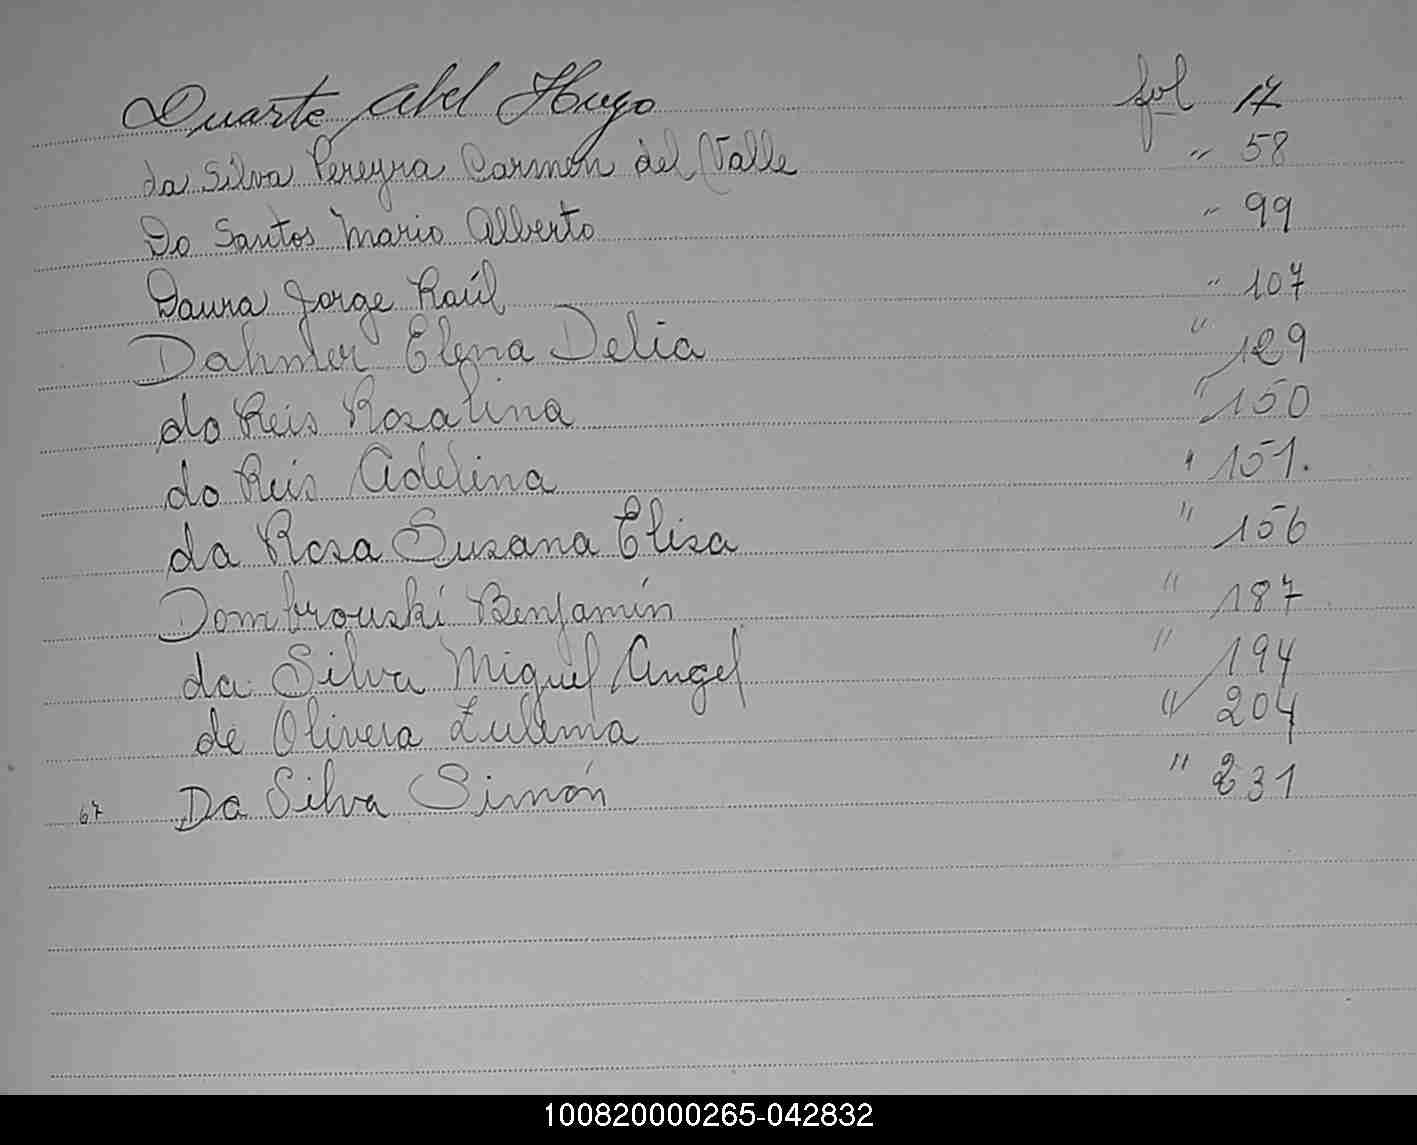 Duarte Abel Hugo fol 17
da Silva Pereyra Carmen del Valle " 58
Do Santos Mario Alberto " 99
Daura Jorge Raúl " 107
Dahmer Elena Delia " 129
do Reis Rosalina " 150
do Reis Adelina " 151.
da Rosa Susana Elisa " 156
Dombrouski Benjamín " 187
da Silva Miguel Angel " 194
de Olivera Zulema " 204
67 Da Silva Simón " 231
100820000265-042832